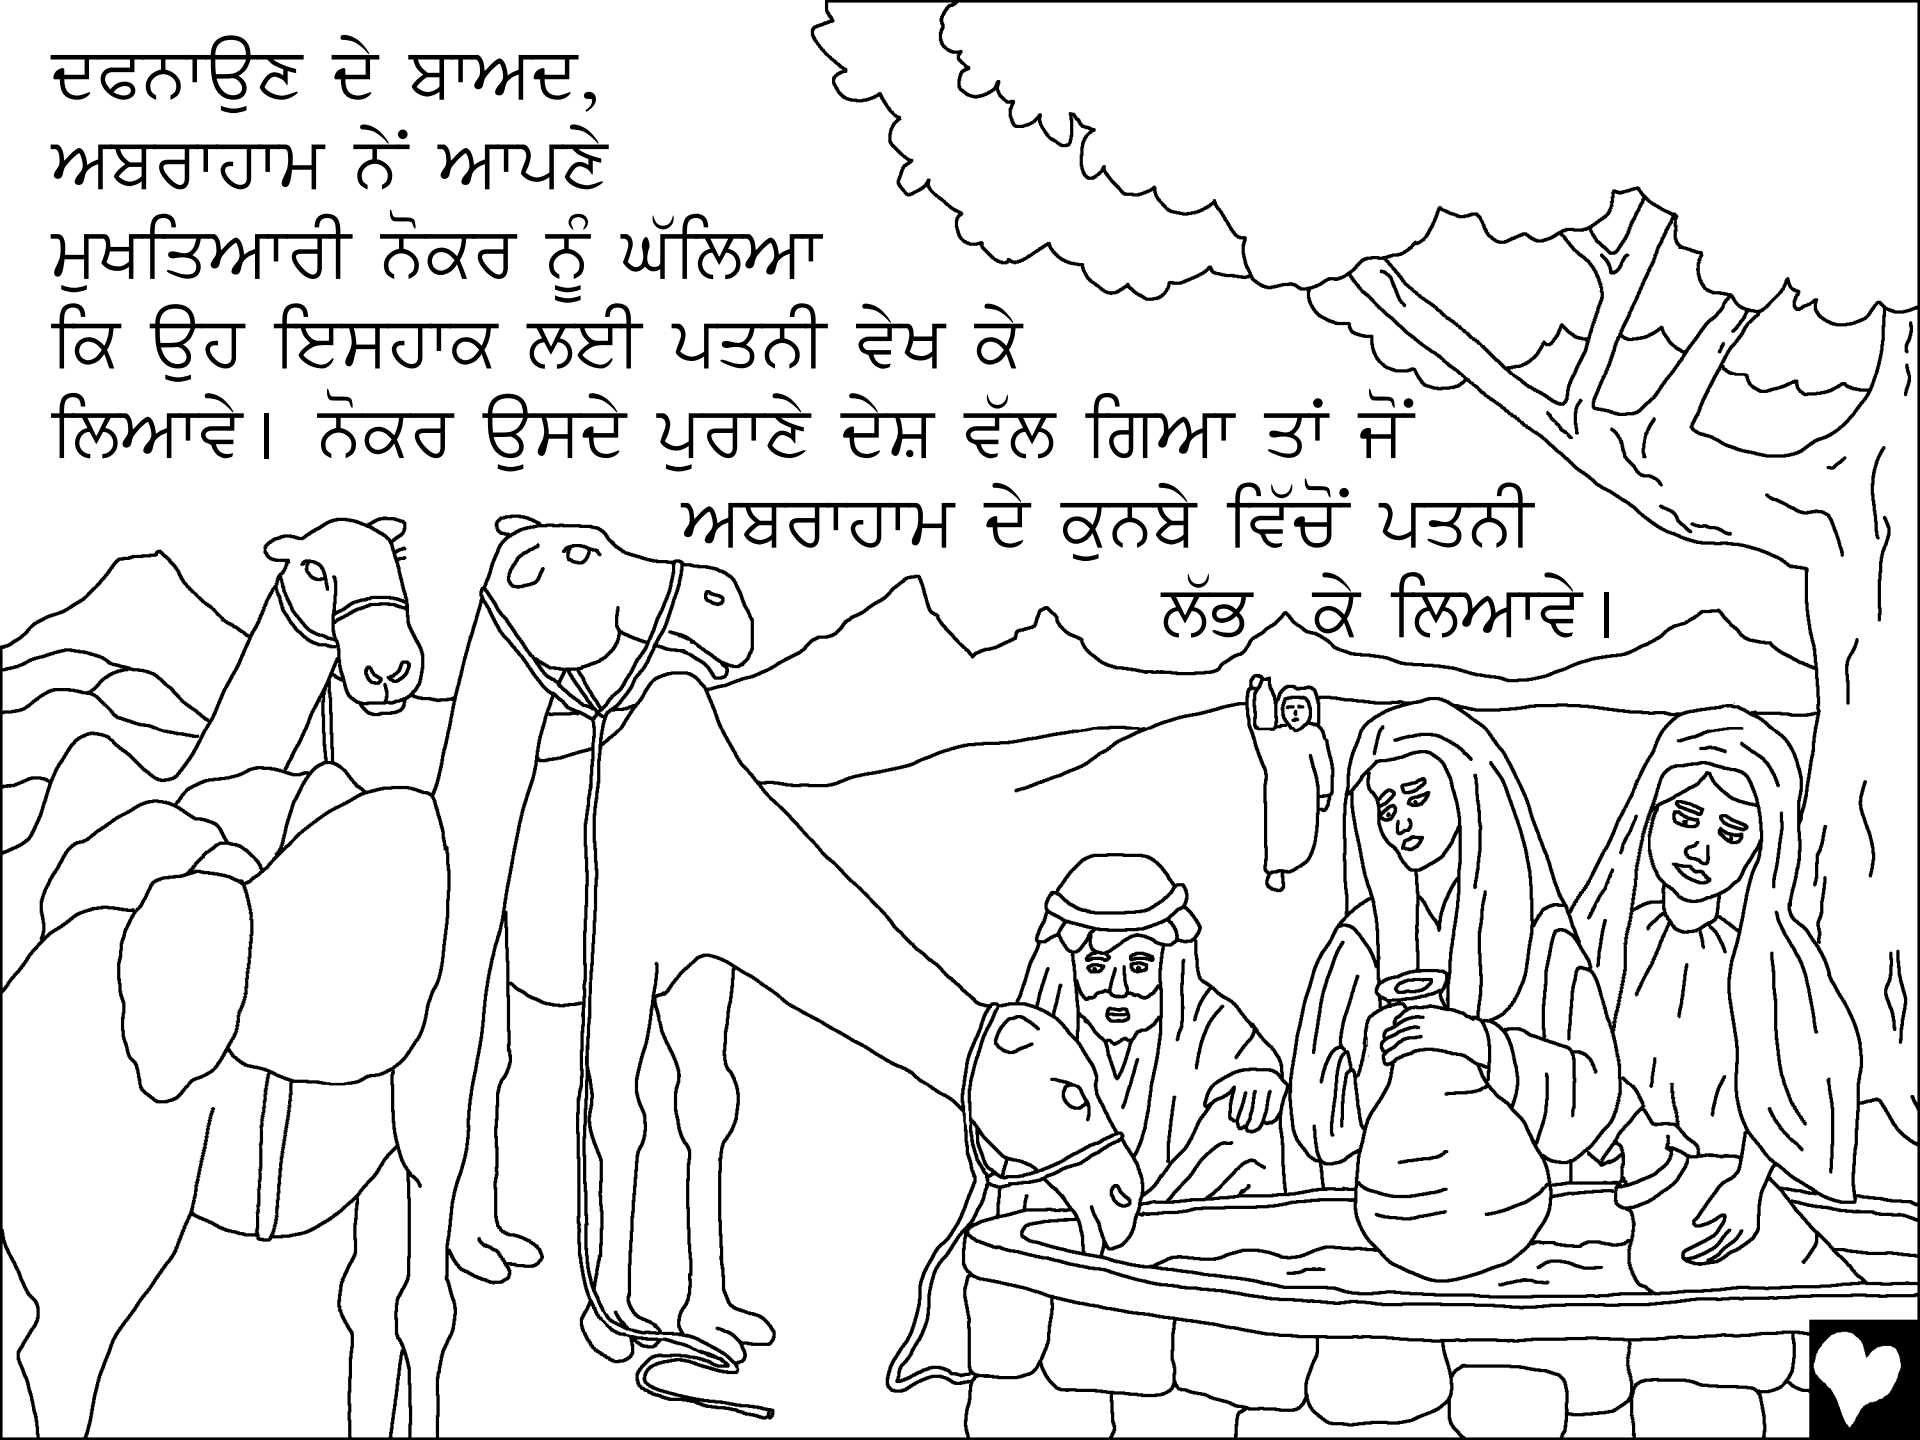 ਦਫਨਾਉਣ ਦੇ ਬਾਅਦ,
ਅਬਰਾਹਾਮ ਨੇਂ ਆਪਣੇ
ਮੁਖਤਿਆਰੀ ਨੋਕਰ ਨੂੰ ਘੱਲਿਆ
ਕਿ ਉਹ ਇਸਹਾਕ ਲਈ ਪਤਨੀ ਵੇਖ ਕੇ
ਲਿਆਵੇ। ਨੋਕਰ ਉਸਦੇ ਪੁਰਾਣੇ ਦੇਸ਼ ਵੱਲ ਗਿਆ ਤਾਂ ਜੋਂ
ਅਬਰਾਹਾਮ ਦੇ ਕੁਨਬੇ ਵਿੱਚੋਂ ਪਤਨੀ
ਲੱਭ ਕੇ ਲਿਆਵੇ।